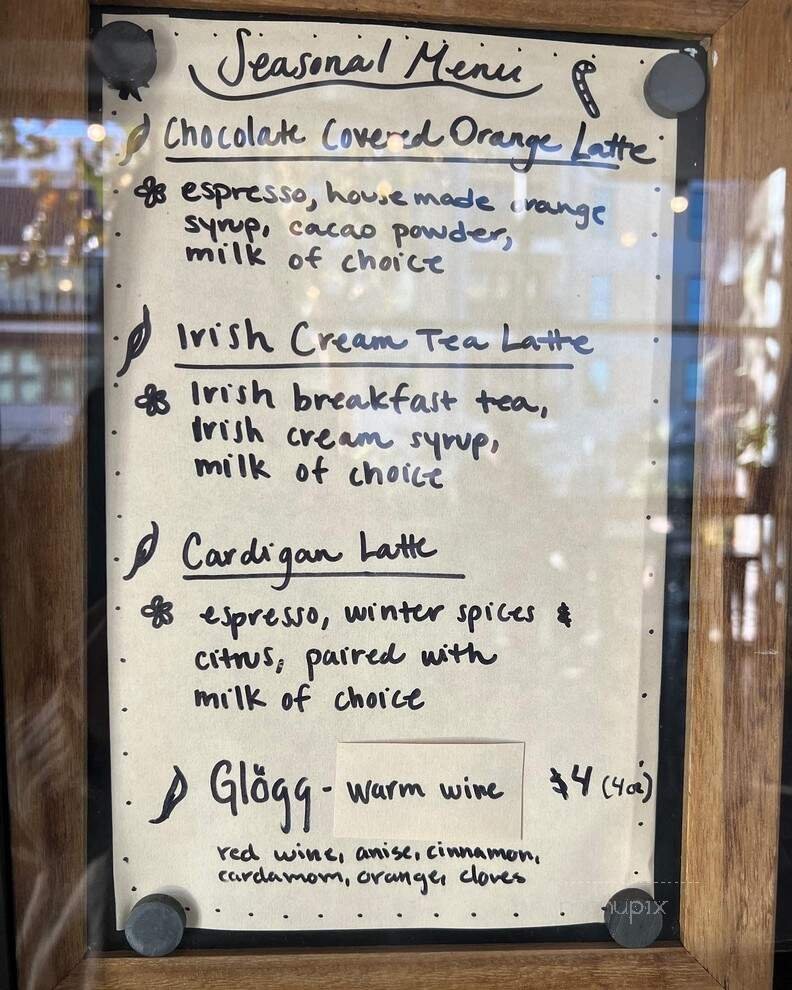 Seasonal Menu
Chocolate Covered Orange Latte
espresso, house made orange
syrup, cacao powder,
milk of choice
Irish Cream Tea Latte
Irish breakfast tea,
Irish cream syrup,
milk of choice
Cardigan Latte
espresso, winter spices &
citrus, paired with
milk of choice
Glögg - warm wine $4 (4oz)
red wine, anise, cinnamon,
cardamom, orange, cloves